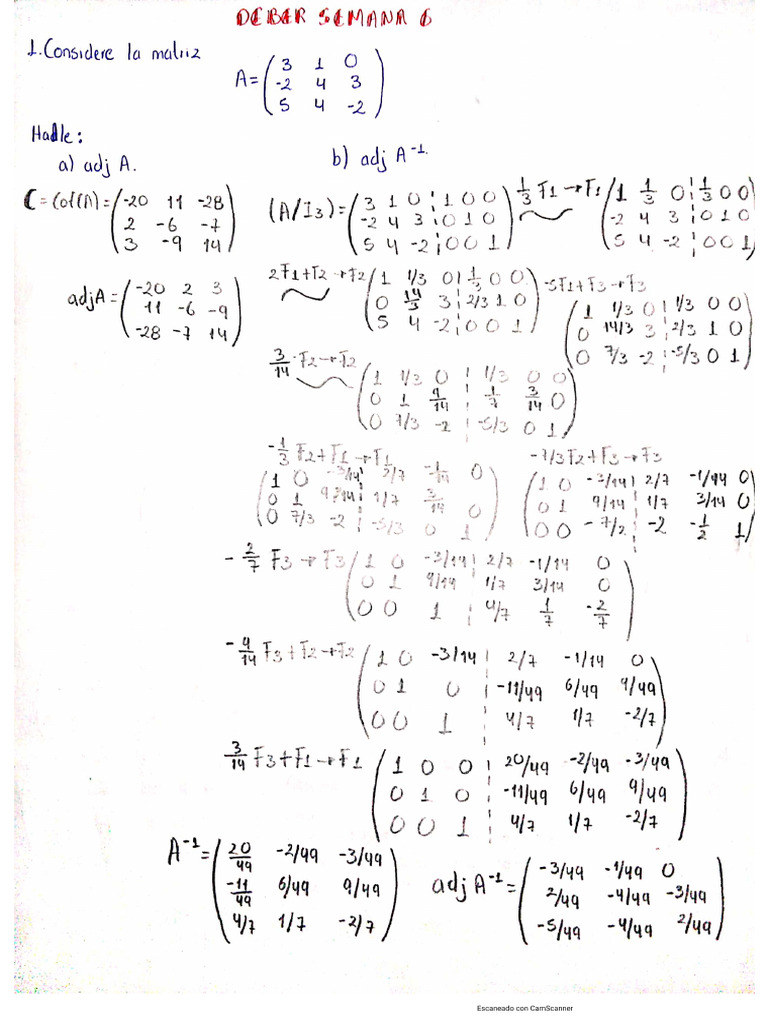 DEBER SEMANA 6
1. Considere la matriz
A = ( 3 1 0
-2 4 3
5 4 -2 )
Halle:
a) adj A. b) adj A⁻¹.
C = Cof(A) = ( -20 11 -28
2 -6 -7
3 -9 14 )
adj A = ( -20 2 3
11 -6 -9
-28 -7 14 )
(A/I3) = ( 3 1 0 ¦ 1 0 0
-2 4 3 ¦ 0 1 0
5 4 -2 ¦ 0 0 1 )
1/3 F1 → F1
( 1 1/3 0 ¦ 1/3 0 0
-2 4 3 ¦ 0 1 0
5 4 -2 ¦ 0 0 1 )
2F1+F2 → F2
( 1 1/3 0 ¦ 1/3 0 0
0 14/3 3 ¦ 2/3 1 0
5 4 -2 ¦ 0 0 1 )
-5F1+F3 → F3
( 1 1/3 0 ¦ 1/3 0 0
0 14/3 3 ¦ 2/3 1 0
0 7/3 -2 ¦ -5/3 0 1 )
3/14 · F2 → F2
( 1 1/3 0 ¦ 1/3 0 0
0 1 9/14 ¦ 1/7 3/14 0
0 7/3 -2 ¦ -5/3 0 1 )
-1/3 F2+F1 → F1
( 1 0 -3/14 ¦ 2/7 -1/14 0
0 1 9/14 ¦ 1/7 3/14 0
0 7/3 -2 ¦ -5/3 0 1 )
-7/3 F2+F3 → F3
( 1 0 -3/14 ¦ 2/7 -1/14 0
0 1 9/14 ¦ 1/7 3/14 0
0 0 -7/2 ¦ -2 -1/2 1 )
-2/7 F3 → F3
( 1 0 -3/14 ¦ 2/7 -1/14 0
0 1 9/14 ¦ 1/7 3/14 0
0 0 1 ¦ 4/7 1/7 -2/7 )
-9/14 F3+F2 → F2
( 1 0 -3/14 ¦ 2/7 -1/14 0
0 1 0 ¦ -11/49 6/49 9/49
0 0 1 ¦ 4/7 1/7 -2/7 )
3/14 F3+F1 → F1
( 1 0 0 ¦ 20/49 -2/49 -3/49
0 1 0 ¦ -11/49 6/49 9/49
0 0 1 ¦ 4/7 1/7 -2/7 )
A⁻¹ = ( 20/49 -2/49 -3/49
-11/49 6/49 9/49
4/7 1/7 -2/7 )
adj A⁻¹ = ( -3/49 -1/49 0
2/49 -4/49 -3/49
-5/49 -4/49 2/49 )
Escaneado con CamScanner